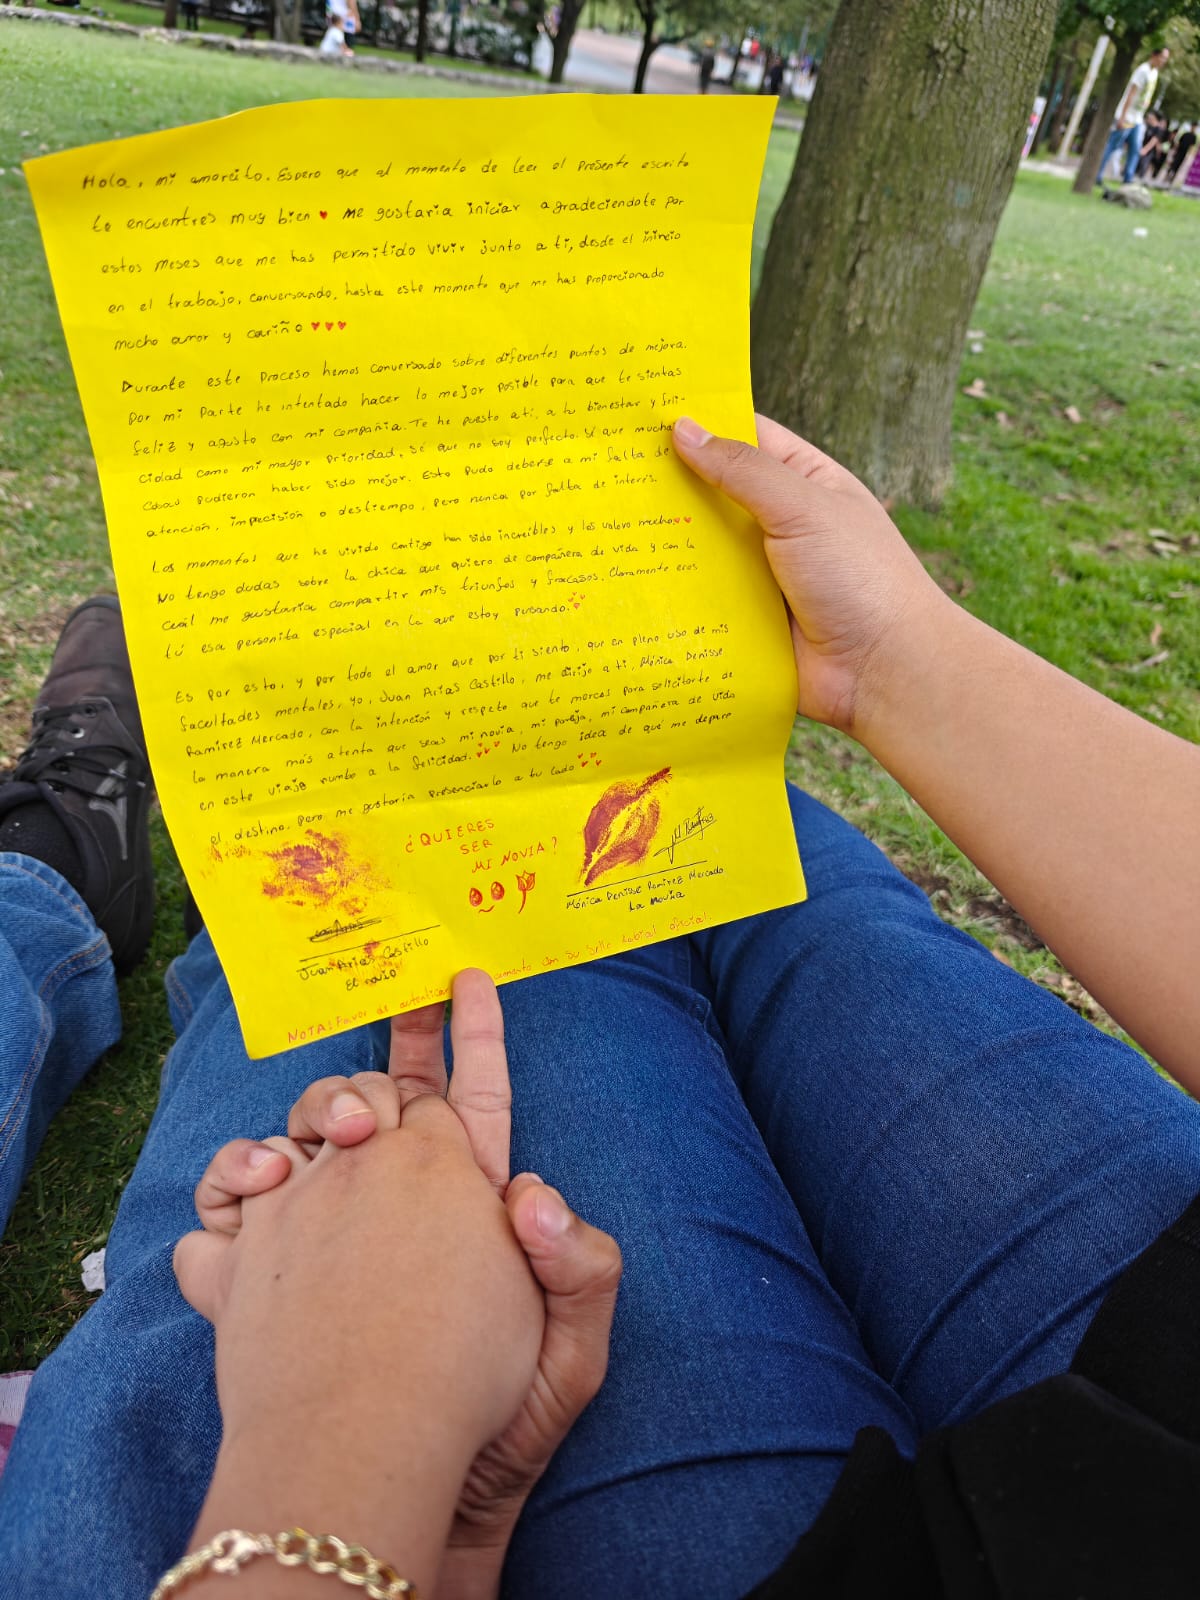 Hola, mi amorcito. Espero que al momento de leer el presente escrito
te encuentres muy bien ♥ me gustaria iniciar agradeciendote por
estos meses que me has permitido vivir junto a ti, desde el inicio
en el trabajo, conversando, hasta este momento que me has proporcionado
mucho amor y cariño ♥♥♥
Durante este proceso hemos conversado sobre diferentes puntos de mejora.
Por mi parte he intentado hacer lo mejor posible para que te sientas
feliz y agusto con mi compañia. Te he puesto a ti, a tu bienestar y feli-
cidad como mi mayor prioridad, sé que no soy perfecto. Sé que muchas
cosas pudieron haber sido mejor. Esto pudo deberse a mi falta de
atención, imprecisión o destiempo, pero nunca por falta de interés.
Los momentos que he vivido contigo han sido increíbles y los valoro mucho ♥♥
No tengo dudas sobre la chica que quiero de compañera de vida y con la
cuál me gustaria compartir mis triunfos y fracasos. Claramente eres
tú esa personita especial en la que estoy pensando. ♥♥♥
Es por esto, y por todo el amor que por ti siento, que en pleno uso de mis
facultades mentales, yo, Juan Arias Castillo, me dirijo a ti, Mónica Denisse
Ramirez Mercado, con la intención y respeto que te mereces para solicitarte de
la manera más atenta que seas mi novia, mi pareja, mi compañera de vida
en este viaje rumbo a la felicidad. ♥♥♥ No tengo idea de qué me depare
el destino, pero me gustaría presenciarlo a tu lado ♥♥♥
¿QUIERES
SER
MI NOVIA?
Juan Arias Castillo
El novio
Mónica Denisse Ramirez Mercado
La novia
NOTA: Favor de autenticar con su sello labial oficial.